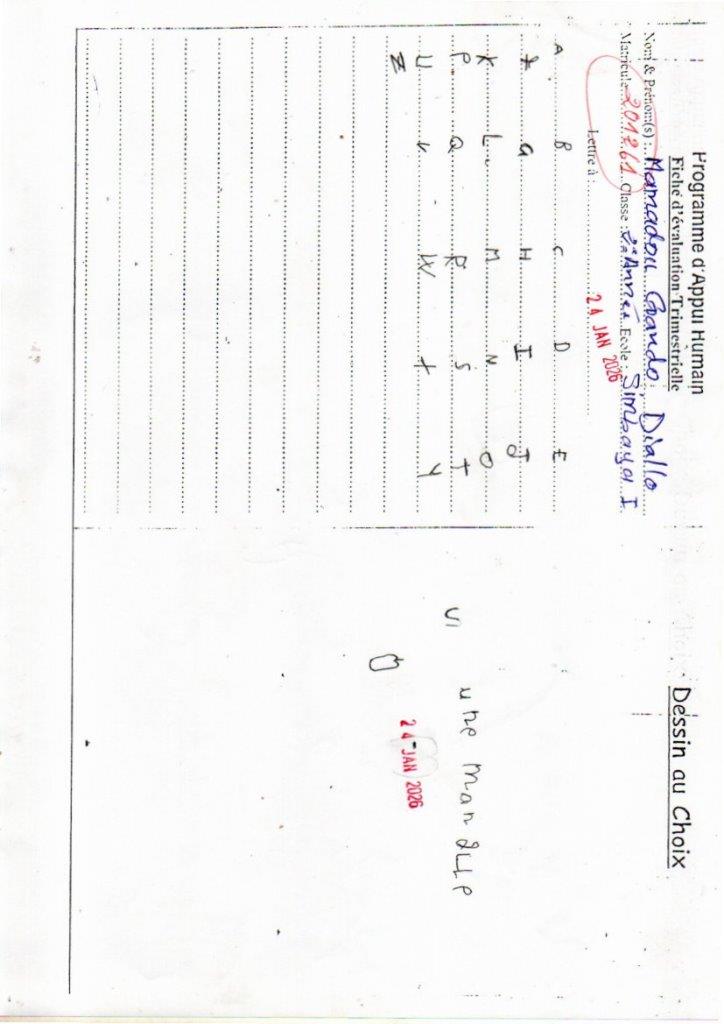 Programme d'Appui Humain
Fiche d'évaluation Trimestrielle
Nom & Prénom(s) : Mamadou Diallo
Matricule 201761 Classe : 2è Année Ecole : Simbaya I
Lettre à :
24 JAN 2026
A B C D E
G H I J
K L M N O
P Q R S T
U V W X Y
Z
Dessin au Choix
une
24 JAN 2026